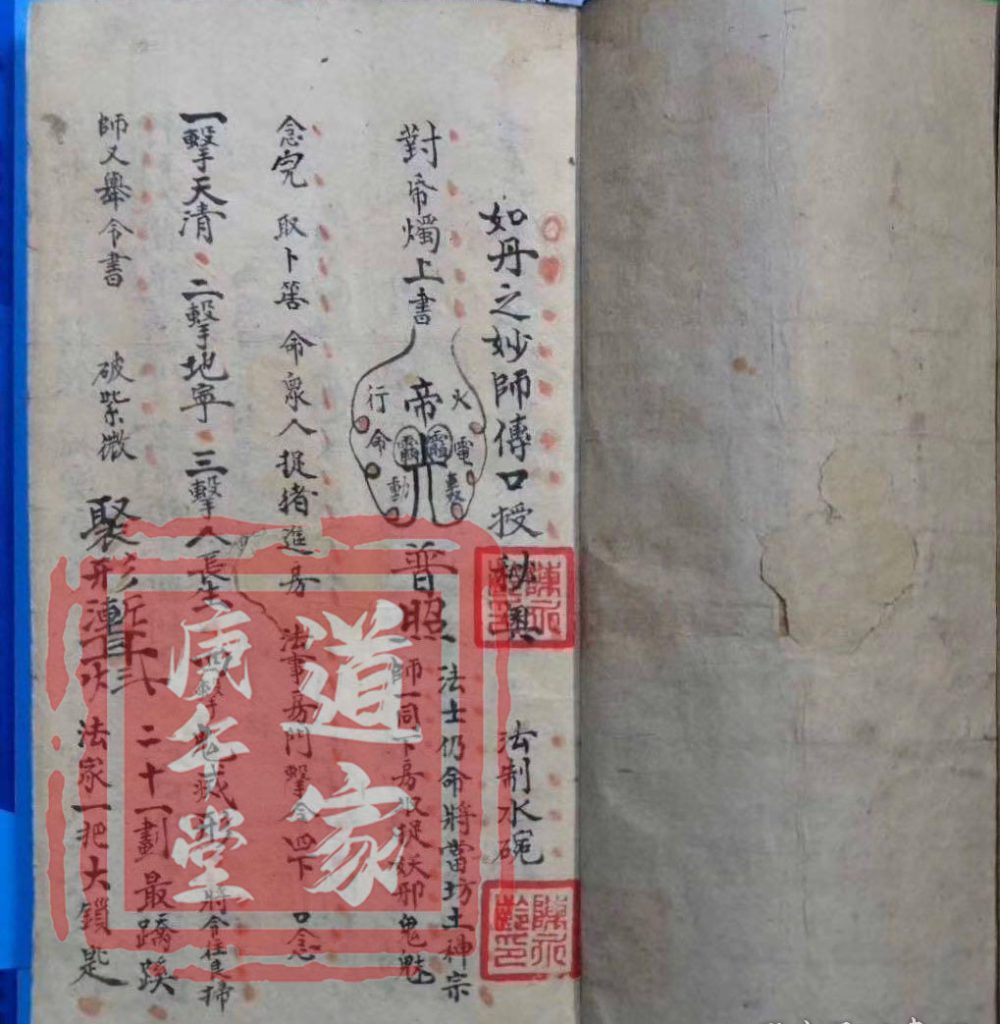 如丹之妙師傳口授秘奧 法制水碗
對帝燭上書
火電轟
帝
行命動
普照
法士仍命將當坊土神宗
師一同下房收捉妖邪鬼魅
念完 取卜筶 命衆人捉猪進房 法事房門擊令四下 口念
一擊天清 二擊地寧 三擊人長生 四擊鬼滅形
將令住良掃
師又舉令書 破紫微
二十一劃最蹺蹊
法家一把大鎖匙
道家
庚午堂